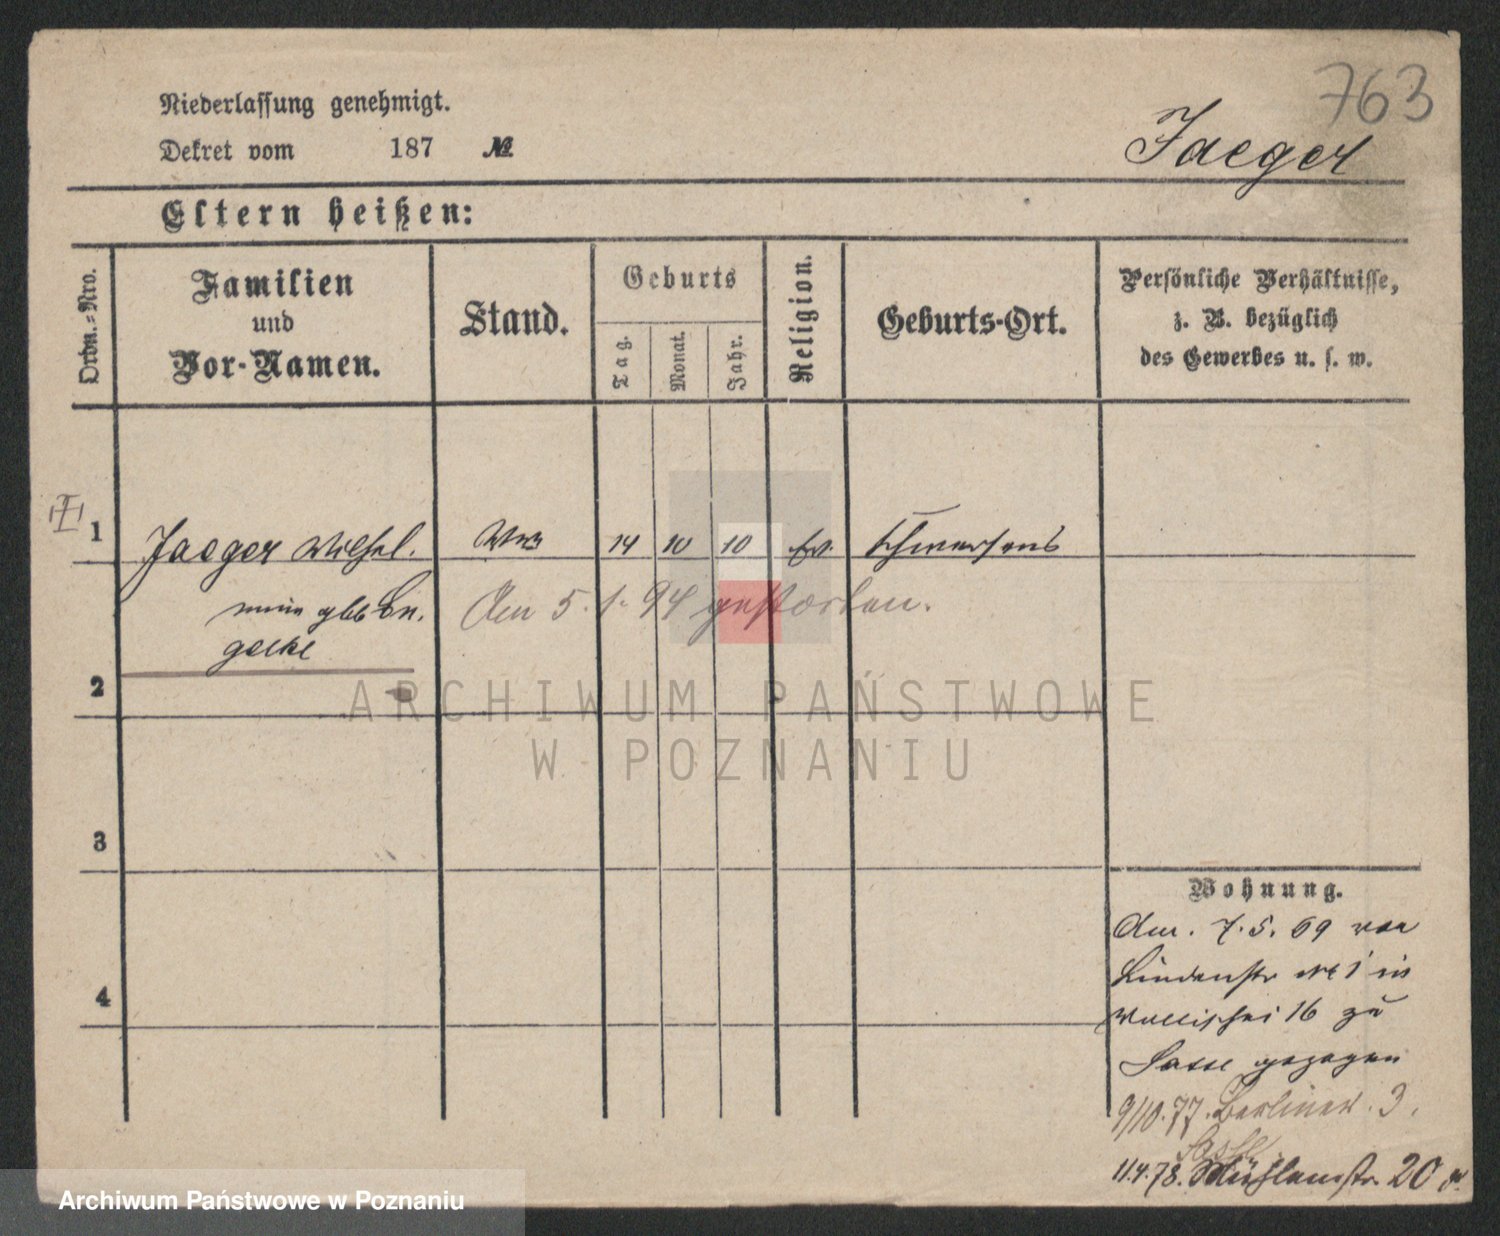 763
Niederlassung genehmigt.
Dekret vom 187 №
Jaeger
Eltern heißen:
Ordn.-Nro.
Familien
und
Vor-Namen.
Stand.
Geburts
Tag.
Monat.
Jahr.
Religion.
Geburts-Ort.
Persönliche Verhältnisse,
z. B. bezüglich
des Gewerbes u. s. w.
1 Jaeger Wilhel. Wwe 14 10 10 ev. Schwersenz
geb
Am 5. 1. 94 gestorben.
2
ARCHIWUM PAŃSTWOWE
W POZNANIU
3
4
Wohnung.
Am. 7. 5. 69 von
Lindenstr № 1 in
Wallischei 16 zu
Sasse gezogen
9/10. 77. Berliner. 3.
Sasse
11.4.78. Mühlenstr. 20
Archiwum Państwowe w Poznaniu